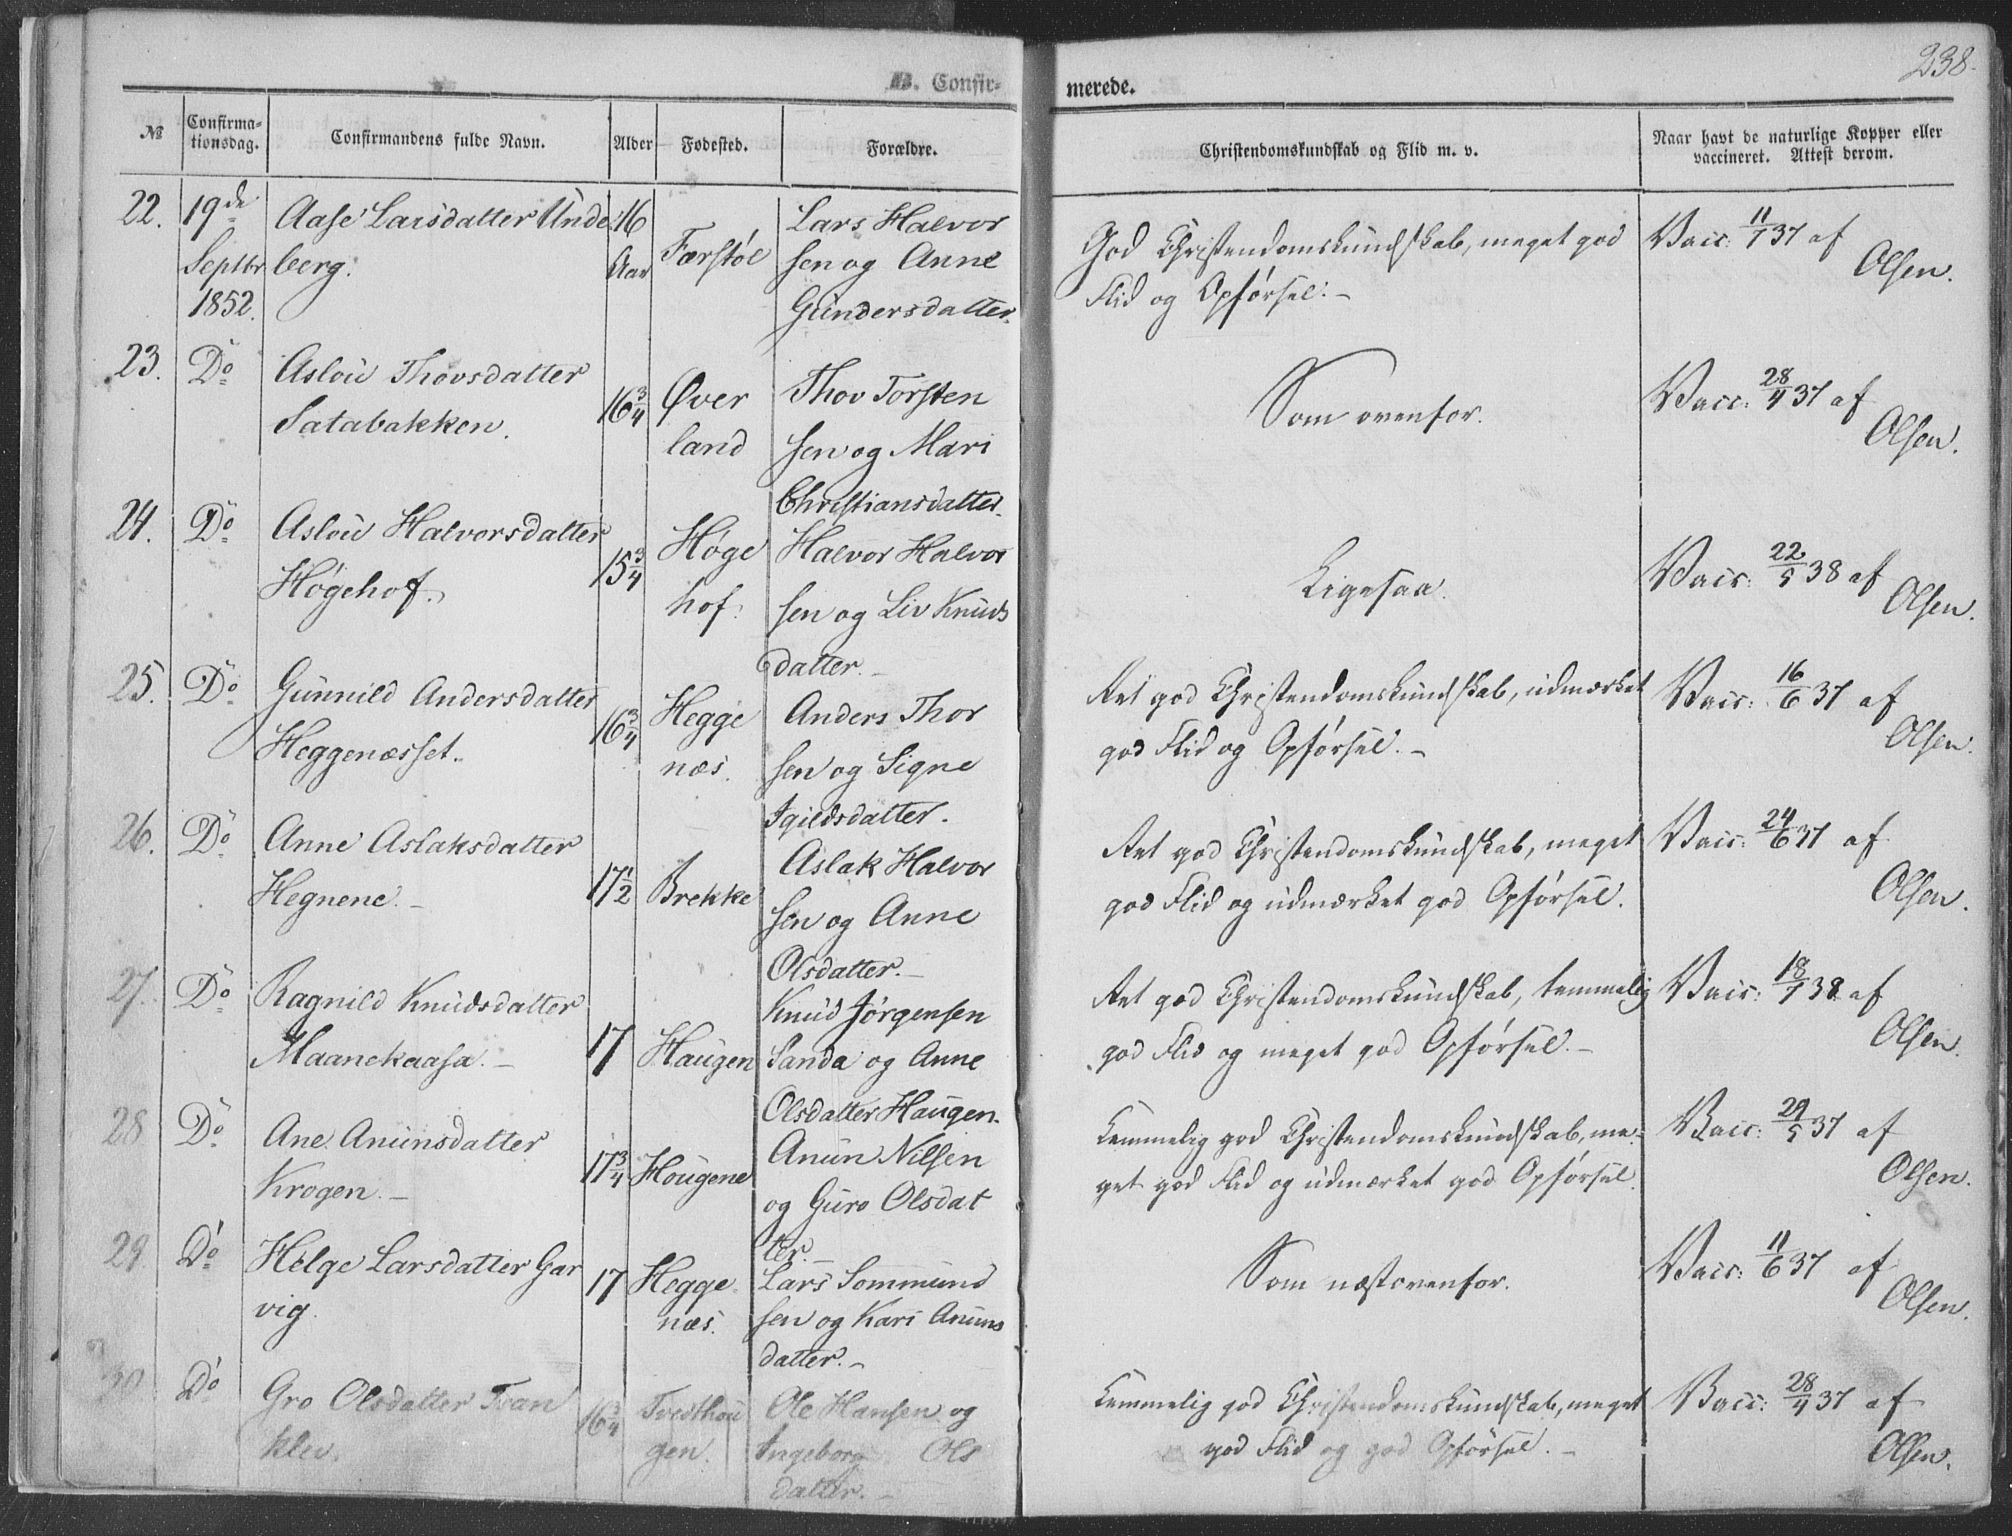 238.
B. Confir-
merede.
№
Confirma-
tionsdag.
Confirmandens fulde Navn.
Alder
Fødested.
Forældre.
Christendomskundskab og Flid m. v.
Naar havt de naturlige Kopper eller
vaccineret. Attest derom.
22. 19de Aase Larsdatter Unde 16 Lars Halvor
Septbr berg. Aar Færstøl sen og Anne
1852. Gundersdatter.
God Christendomskundskab, meget god Vacc: 11/7 37 af
Flid og Opførsel. – Olsen.
23. Do Aslou Thovsdatter 16 3/4 Øver Thov Torsten
Satabakken. land sen og Mari
Christiansdatter.
Som ovenfor. Vacc: 28/4 37 af
Olsen.
24. Do Aslou Halvorsdatter 15 3/4 Høge Halvor Halvor
Høgehof. hof. sen og Liv Knuds
datter. –
Ligesaa. Vacc: 22/5 38 af
Olsen.
25. Do Gunnild Andersdatter 16 3/4 Hegge Anders Thor
Heggenæsset. næs. sen og Signe
Igildsdatter.
Ret god Christendomskundskab, udmærket Vacc: 16/6 37 af
god Flid og Opførsel. – Olsen.
26. Do Anne Aslaksdatter 17 1/2 Brekke Aslak Halvor
Hegnene. – sen og Anne
Olsdatter. –
Ret god Christendomskundskab, meget Vacc: 24/6 37 af
god Flid og udmærket god Opførsel. Olsen.
27. Do Ragnild Knudsdatter Knud Jørgensen
Maanekaasa. – 17 Haugen Sanda og Anne
Olsdatter Haugen.
Ret god Christendomskundskab, temmelig Vacc: 18/7 38 af
god Flid og meget god Opførsel. – Olsen.
28 Do Ane Anunsdatter 17 3/4 Hougene Anun Nilsen
Krogen. – og Guro Olsdat
ter. –
Temmelig god Christendomskundskab, me- Vacc: 29/5 37 af
get god Flid og udmærket god Opførsel. Olsen.
29. Do Helge Larsdatter Gar 17 Hegge Lars Sommund
vig. næs. sen og Kari Anuns
datter. –
Som næstovenfor. Vacc: 11/6 37 af
Olsen.
30 Do Gro Olsdatter Tvan 16 3/4 Tvedthou Ole Hansen og
klev. gen. Ingeborg Ols
datter. –
Temmelig god Christendomskundskab, meget Vacc: 28/4 37 af
god Flid og god Opførsel. – Olsen.